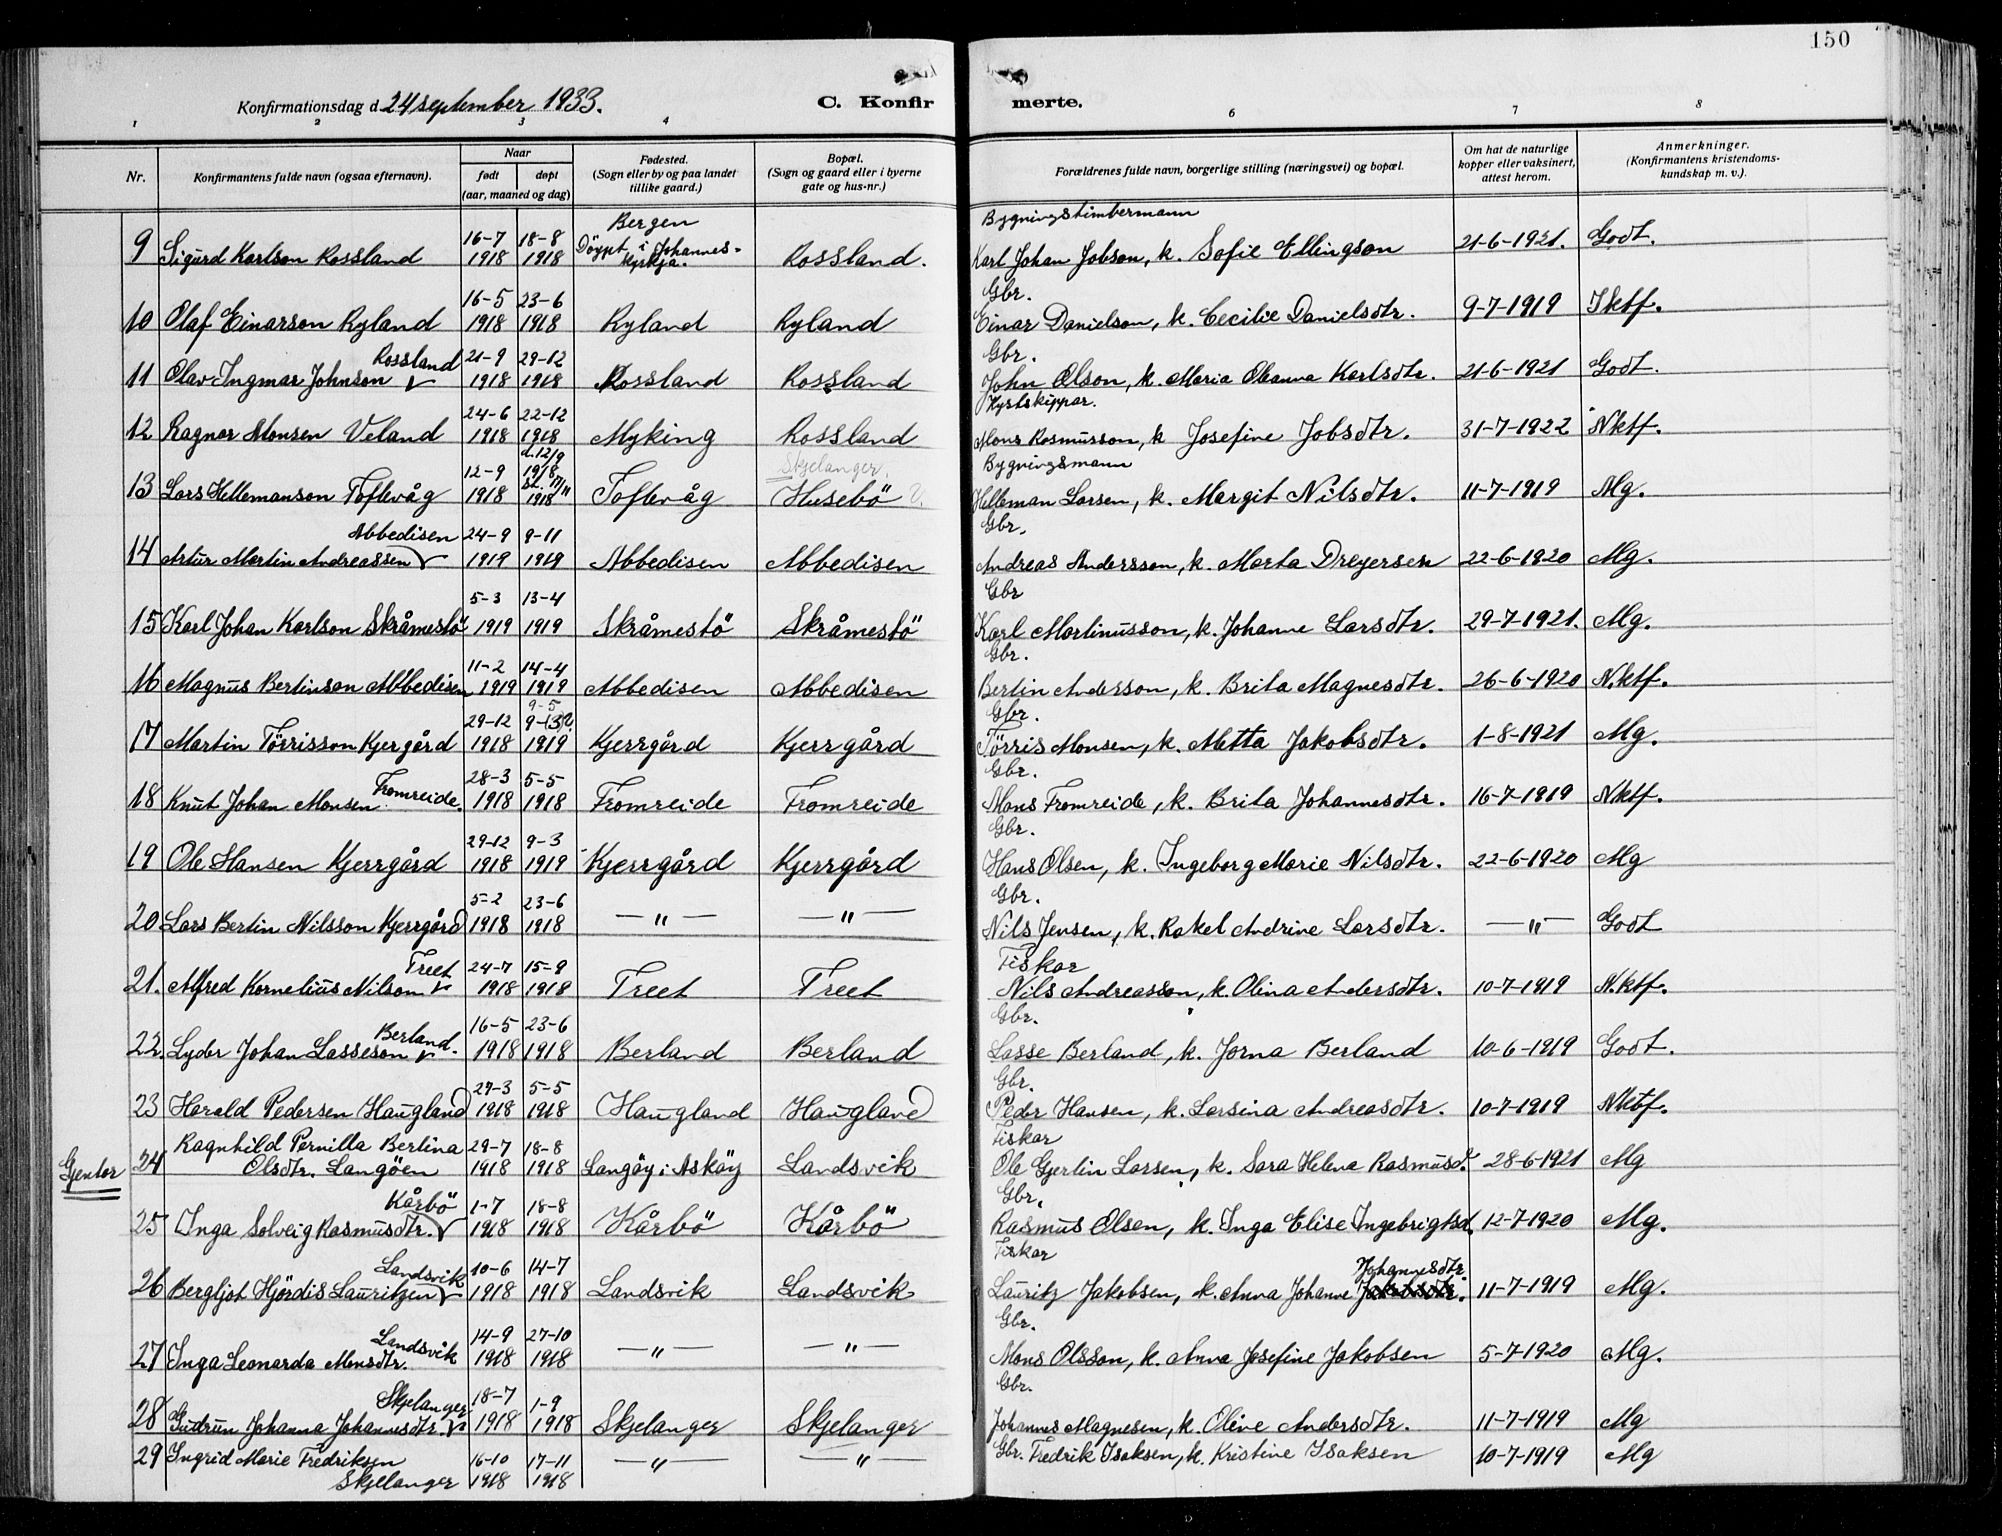 150
Konfirmationsdag d. 24 september 1933.
C. Konfirmerte.
1 2 3 4 6 7 8
Nr.
Konfirmantens fulde navn (ogsaa efternavn).
Naar
født døpt
(aar, maaned og dag)
Fødested.
(Sogn eller by og paa landet
tillike gaard.)
Bopæl.
(Sogn og gaard eller i byerne
gate og hus-nr.)
Forældrenes fulde navn, borgerlige stilling (næringsvei) og bopæl.
Om hat de naturlige
kopper eller vaksinert,
attest herom.
Anmerkninger.
(Konfirmantens kristendoms-
kundskap m. v.).
Bergen Bygningstimbermann
16-7 18-8 Döypt i Johannes-
9 Sigurd Karlson Rossland 1918 1918 kyrkja. Rossland. Karl Johan Jobson, k. Sofie Ellingson 21-6-1921. Godt.
16-5 23-6 Gbr.
10 Olaf Einarson Ryland 1918 1918 Ryland Ryland Einar Danielson, k. Cecilie Danielsdtr. 9-7-1919 Iktf.
Rossland 21-9 29-12 Gbr.
11 Olav Ingmar Johnson 1918 1918 Rossland Rossland John Olson, k. Maria Oleanna Karlsdtr. 21-6-1921 Godt.
24-6 22-12 Kystskippar.
12 Ragnar Monsen Veland 1918 1918 Myking Rossland Mons Rasmusson, k Josefine Jobsdtr. 31-7-1922 Nktf.
12-9 d. 12/9 1918 Skjelanger. Bygningsmann
13 Lars Hellemanson Toflevåg 1918 st. 17/11 1918 Toflevåg Husebö ? Helleman Larsen, k. Margit Nilsdtr. 11-7-1919 Mg.
Abbedisen 24-9 9-11 Gbr.
14 Artur Martin Andreassen 1919 1919 Abbedisen Abbedisen Andreas Andersson, k. Marta Dreyersen 22-6-1920 Mg.
5-3 13-4 Gbr
15 Karl Johan Karlson Skråmestö 1919 1919 Skråmestö Skråmestö Karl Martinusson, k. Johanne Larsdtr. 29-7-1921. Mg.
11-2 14-4 Gbr.
16 Magnus Bertinson Abbedisen 1919 1919 Abbedisen Abbedisen Bertin Andersson, k. Brita Magnesdtr. 26-6-1920 N.ktf.
9-5
29-12 9-(3)? Gbr.
17 Martin Törrisson Kjergård 1918 1919 Kjerrgård Kjerrgård Törris Monsen, k. Metta Jakobsdtr. 1-8-1921 Mg.
Fromreide. 28-3 5-5 Gbr.
18 Knut Johan Monsen 1918 1918 Fromreide Fromreide Mons Fromreide, k. Brita Johannesdtr. 16-7-1919 Nktf.
29-12 9-3 Gbr.
19 Ole Hansen Kjerrgård 1918 1919 Kjerrgård Kjerrgård Hans Olsen, k. Ingeborg Marie Nilsdtr. 22-6-1920 Mg
5-2 23-6 Gbr.
20 Lars Bertin Nilsson Kjerrgård 1918 1918 — " — — " — Nils Jensen, k. Rakel Andrine Larsdtr. — " — Godt
Treet 24-7 15-9 Fiskar
21. Alfred Kornelius Nilson 1918 1918 Treet Treet Nils Andreasson, k. Olina Andersdtr. 10-7-1919 N.ktf.
Berland. 16-5 23-6 Gbr.
22. Lyder Johan Lasseson 1918 1918 Berland Berland Lasse Berland, k. Jorna Berland 10-6-1919 Godt.
27-3 5-5 Gbr.
23 Harald Pedersen Haugland 1918 1918 Haugland Haugland Peder Hansen, k. Larsina Andreasdtr. 10-7-1919 Nktf.
Gjentor
Ragnhild Pernilla Bertina 29-7 18-8 Fiskar
24 Olsdtr. Langöen 1918 1918 Langöy i Asköy Landsvik Ole Gjertin Larsen, k. Sara Helena Rasmusd. 28-6-1921 Mg
Kårbö 1-7 18-8 Gbr.
25 Inga Solveig Rasmusdtr. 1918 1918 Kårbö Kårbö Rasmus Olsen, k. Inga Elise Ingebrigtsd. 12-7-1920 Mg.
Landsvik 10-6 14-7 Fiskar Johannesdtr.
26 Bergljot Hjördis Lauritzen 1918 1918 Landsvik Landsvik Lauritz Jakobsen, k. Anna Johanne Jakobsdtr. 11-7-1919 Mg.
Landsvik 14-9 27-10 Gbr.
27 Inga Leonarda Monsdtr. 1918 1918 — " — — " — Mons Olsson, k. Anna Josefine Jakobsen 5-7-1920 Mg.
Skjelanger 18-7 1-9 Gbr.
28 Gudrun Johanna Johannesdtr. 1918 1918 Skjelanger Skjelanger Johannes Magnesen, k. Oline Andersdtr. 11-7-1919 Mg
29 Ingrid Marie Fredriksen 16-10 17-11 — " — — " — Gbr. Fredrik Isaksen, k. Kristine Isaksen 10-7-1919 Mg
Skjelanger 1918 1918